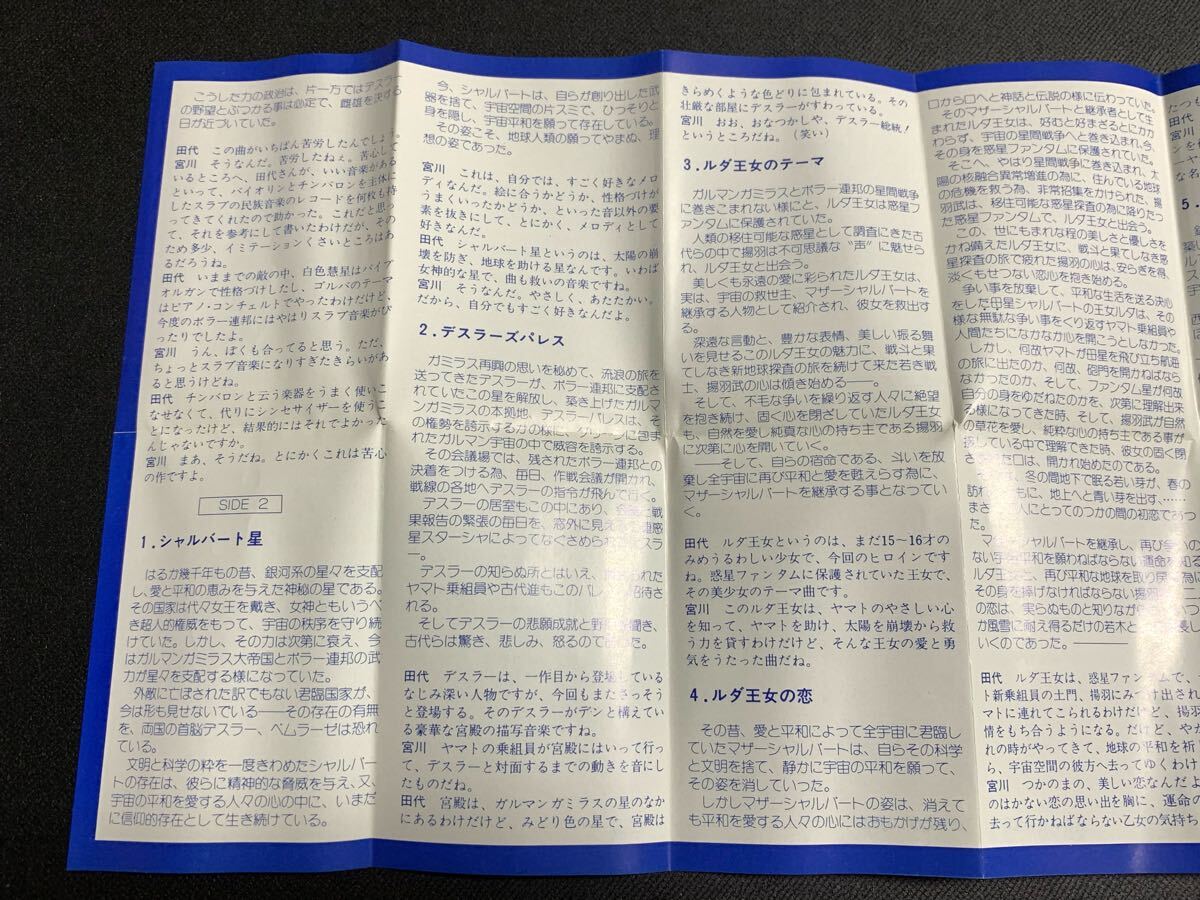 こうした力の政治は、片一方ではデスラー
の野望とぶつかる事は必定で、雌雄を決する
日が近づいていた。
田代　この曲がいちばん苦労したんでしょう。
宮川　そうなんだ。苦労したねぇ。苦心して
いるところへ、田代さんが、いい音楽がある
といって、バイオリンとチンバロンを主体に
したスラブの民族音楽のレコードを何枚も持
ってきてくれたので助かった。これだと思っ
て、それを参考にして書いたわけだが、その
ため多少、イミテーションくさいところはあ
るだろうね。
田代　いままでの敵の中、白色彗星はパイプ
オルガンで性格づけしたし、ゴルバのテーマ
はピアノ・コンチェルトでやったわけだけど、
今度のボラー連邦にはやはりスラブ音楽がぴ
ったりでしたよ。
宮川　うん、ぼくも合ってると思う。ただ、
ちょっとスラブ音楽になりすぎたきらいがあ
ると思うけどね。
田代　チンバロンと云う楽器をうまく使いこ
なせなくて、代りにシンセサイザーを使うこ
とになったけど、結果的にはそれでよかった
んじゃないですか。
宮川　まあ、そうだね。とにかくこれは苦心
の作ですよ。
SIDE 2
1．シャルバート星
はるか幾千年もの昔、銀河系の星々を支配
し、愛と平和の恵みを与えた神秘の星である。
その国家は代々女王を戴き、女神ともいうべ
き超人的権威をもって、宇宙の秩序を守り続
けていた。しかし、その力は次第に衰え、今
はガルマンガミラス大帝国とボラー連邦の武
力が星々を支配する様になっていた。
外敵に亡ぼされた訳でもない君臨国家が、
今は形も見せないでいる――その存在の有無
を、両国の首脳デスラー、ベムラーゼは恐れ
ている。
文明と科学の粋を一度きわめたシャルバー
トの存在は、彼らに精神的な脅威を与え、又、
宇宙の平和を愛する人々の心の中に、いまだ
に信仰的存在として生き続けている。
今、シャルバートは、自らが創り出した武
器を捨て、宇宙空間の片スミで、ひっそりと
身を隠し、宇宙平和を願って存在している。
その姿こそ、地球人類の願ってやまぬ、理
想の姿であった。
宮川　これは、自分では、すごく好きなメロ
ディなんだ。絵に合うかどうか、性格づけが
うまくいったかどうか、といった音以外の要
素を抜きにして、とにかく、メロディとして
好きなんだ。
田代　シャルバート星というのは、太陽の崩
壊を防ぎ、地球を助ける星なんです。いわば
女神的な星で、曲も救いの音楽ですね。
宮川　そうなんだ。やさしく、あたたかい。
だから、自分でもすごく好きなんだよ。
2．デスラーズパレス
ガミラス再興の思いを秘めて、流浪の旅を
送ってきたデスラーが、ボラー連邦に支配さ
れていたこの星を解放し、築き上げたガルマ
ンガミラスの本拠地、デスラーパレスは、そ
の権勢を誇示するかの様に、グリーンに包ま
れたガルマン宇宙の中で威容を誇示する。
その会議場では、残されたボラー連邦との
決着をつける為、毎日、作戦会議が開かれ、
戦線の各地へデスラーの指令が飛んで行く。
デスラーの居室もこの中にあり、
果報告の緊張の毎日を、窓外に見える
星スターシャによってなぐさめられ
―。
デスラーの知らぬ所とはいえ、
ヤマト乗組員や古代進もこのパレ
れる。
そしてデスラーの悲願成就と野望を聞き、
古代らは驚き、悲しみ、怒るのであった。
田代　デスラーは、一作目から登場している
なじみ深い人物ですが、今回もまたさっそう
と登場する。そのデスラーがデンと構えてい
る豪華な宮殿の描写音楽ですね。
宮川　ヤマトの乗組員が宮殿にはいって行っ
て、デスラーと対面するまでの動きを音にし
たものだね。
田代　宮殿は、ガルマンガミラスの星のなか
にあるわけだけど、みどり色の星で、宮殿は
きらめくような色どりに包まれている。その
壮厳な部屋にデスラーがすわっている。
宮川　おお、おなつかしや、デスラー総統！
というところだね。（笑い）
3．ルダ王女のテーマ
ガルマンガミラスとボラー連邦の星間戦争
に巻きこまれない様にと、ルダ王女は惑星フ
ァンタムに保護されていた。
人類の移住可能な惑星として調査にきた古
代らの中で揚羽は不可思議な〝声〟に魅せら
れ、ルダ王女と出会う。
美しくも永遠の愛に彩られたルダ王女は、
実は、宇宙の救世主、マザーシャルバートを
継承する人物として紹介され、彼女を救出す
る。
深遠な言動と、豊かな表情、美しい振る舞
いを見せるこのルダ王女の魅力に、戦斗と果
てしなき新地球探査の旅を続けて来た若き戦
士、揚羽武の心は傾き始める――。
そして、不毛な争いを繰り返す人々に絶望
を抱き続け、固く心を閉ざしていたルダ王女
も、自然を愛し純真な心の持ち主である揚羽
に次第に心を開いていく。
――そして、自らの宿命である、斗いを放
棄し全宇宙に再び平和と愛を甦えらす為に、
マザーシャルバートを継承する事となってい
く。
田代　ルダ王女というのは、まだ15〜16才の
みめうるわしい少女で、今回のヒロインです
ね。惑星ファンタムに保護されていた王女で、
その美少女のテーマ曲です。
宮川　このルダ王女は、ヤマトのやさしい心
を知って、ヤマトを助け、太陽を崩壊から救
う力を貸すわけだけど、そんな王女の愛と勇
気をうたった曲だね。
4．ルダ王女の恋
その昔、愛と平和によって全宇宙に君臨し
ていたマザーシャルバートは、自らその科学
と文明を捨て、静かに宇宙の平和を願って、
その姿を消していった。
しかしマザーシャルバートの姿は、消えて
も平和を愛する人々の心にはおもかげが残り、
口から口へと神話と伝説の様に伝わっていた。
そのマザーシャルバートと継承者として生
まれたルダ王女は、好むと好まざるとにかか
わらず、宇宙の星間戦争へと巻き込まれ、今、
その身を惑星ファンタムに保護されていた。
そこへ、やはり星間戦争に巻き込まれ、太
陽の核融合異常増進の為に、住んでいる地球
の危機を救う為、非常招集をかけられた、揚
羽武は、移住可能な惑星探査の為に降りたっ
た惑星ファンタムで、ルダ王女と出会う。
この、世にもまれな程の美しさと優しさを
かね備えたルダ王女に、戦斗と果てしなき惑
星探査の旅で疲れた揚羽の心は、安らぎを得、
淡くもせつない恋心を抱き始める。
争い事を放棄して、平和な生活を送る決心
をした母星シャルバートの王女ルダは、その
様な無駄な争い事をくり返すヤマト乗組員や
人間たちになかなか心を開こうとしなかった。
しかし、何故ヤマトが母星を飛び立ち航海
の旅に出たのか、何故、砲門を開かねばなら
なかったのか、そして、ファンタム星が何故
自分の身をゆだねたのかを、次第に理解出来
る様になってきた時、そして、揚羽武が自然
の草花を愛し、純粋な心の持ち主である事が
している中で理解できた時、彼女の固く閉
口は、開かれ始めたのである。
冬の間地下で眠る若い芽が、春の
訪れ　もに、地上へと青い芽を出す……
まさ　人にとってのつかの間の初恋であっ
た。
マザーシャルバートを継承し、再び争いの
ない宇宙平和を願わねばならない運命を知る
ルダ王女と、再び平和な地球を取り戻す為に
その身を捧げなければならない揚羽
の恋は、実らぬものと知りながら
か風雪に耐え得るだけの若木と
いくのであった。―――
田代　ルダ王女は、惑星ファンタムで、
ト新乗組員の土門、揚羽にみつけ出され
マトに連れてこられるわけだけど、揚羽
情をもち合うようになる。だけど、やが
れの時がやってきて、地球の平和を祈
ら、宇宙空間の彼方へ去ってゆくわけ
宮川　つかのまの、美しい恋なんだよ
のはかない恋の思い出を胸に、運命の
去って行かねばならない乙女の気持ち
たつも
田代
宮川
ーヤ
な名
5．